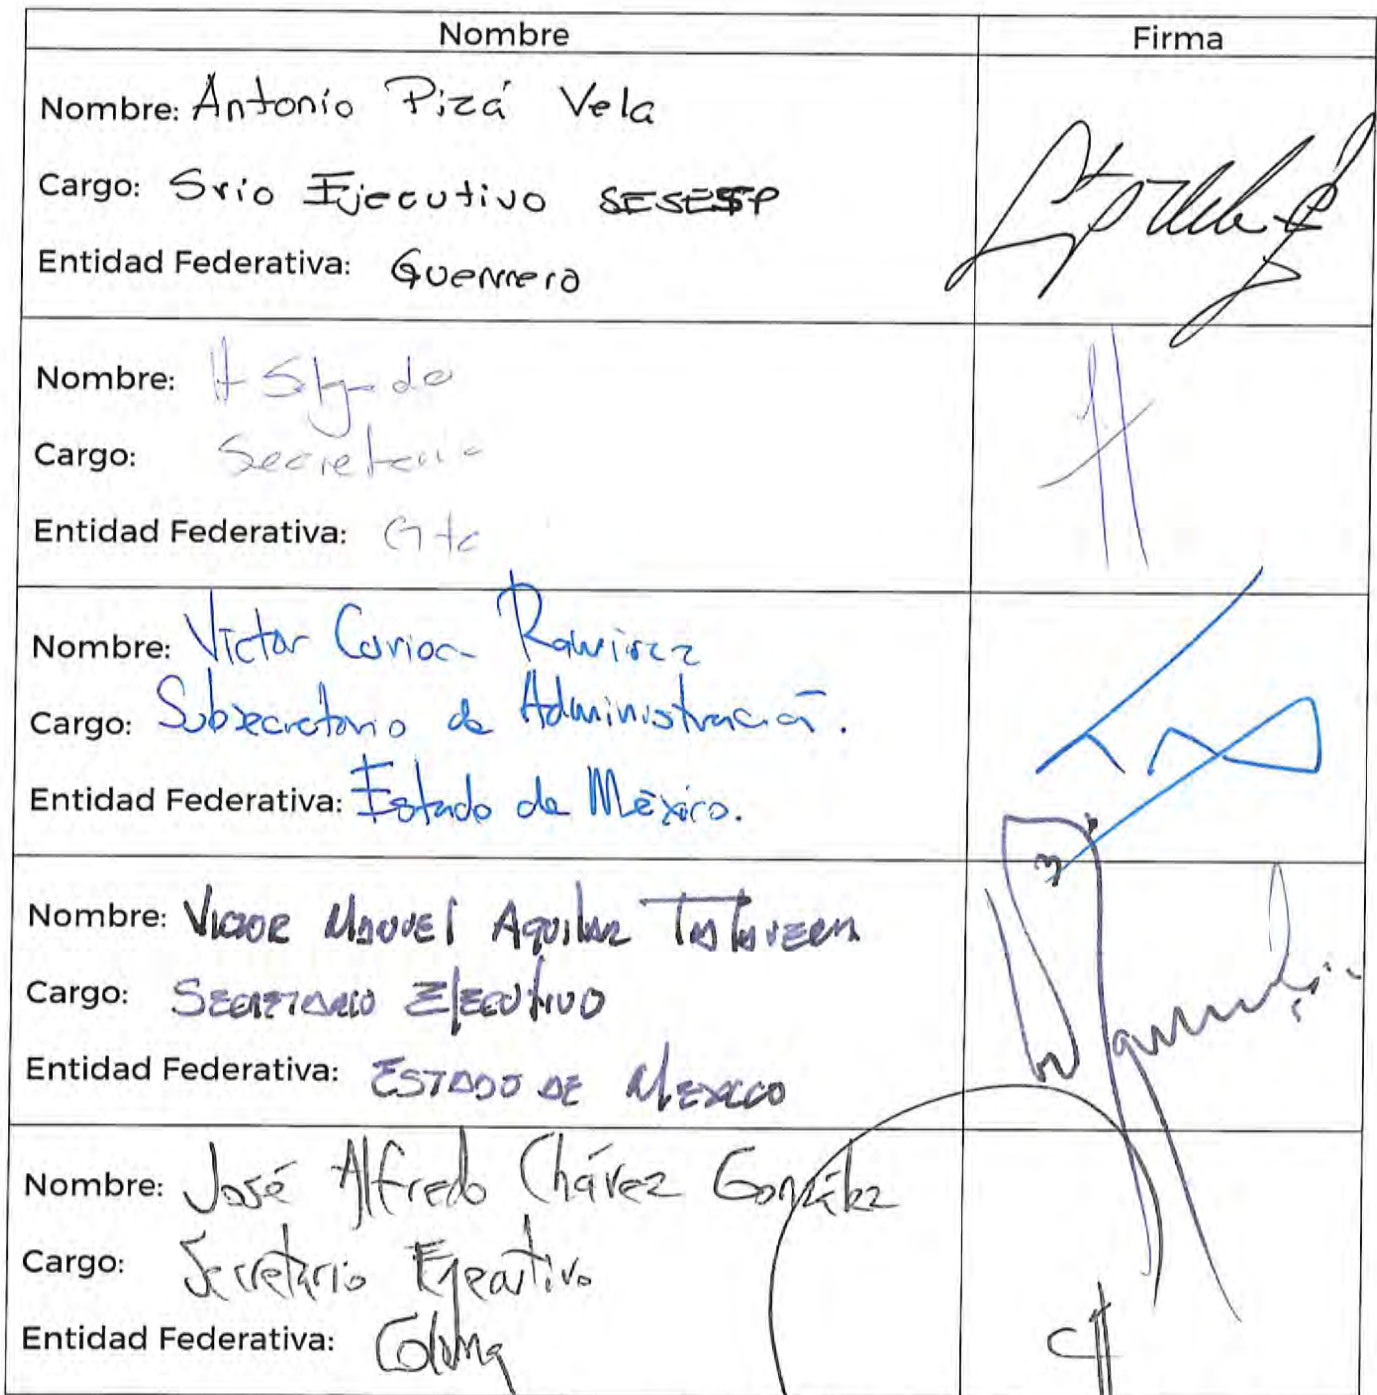 Nombre Firma
Nombre: Antonio Pizá Vela
Cargo: Srio Ejecutivo SESESP
Entidad Federativa: Guerrero
Nombre: H
Cargo: Secretario
Entidad Federativa: Gto
Nombre: Victor Ramirez
Cargo: Subsecretario de Administración.
Entidad Federativa: Estado de México.
Nombre: VICTOR MANUEL Aguilar Talavera
Cargo: SECRETARIO EJECUTIVO
Entidad Federativa: ESTADO DE MEXICO
Nombre: José Alfredo Chávez González
Cargo: Secretario Ejecutivo
Entidad Federativa: Colima